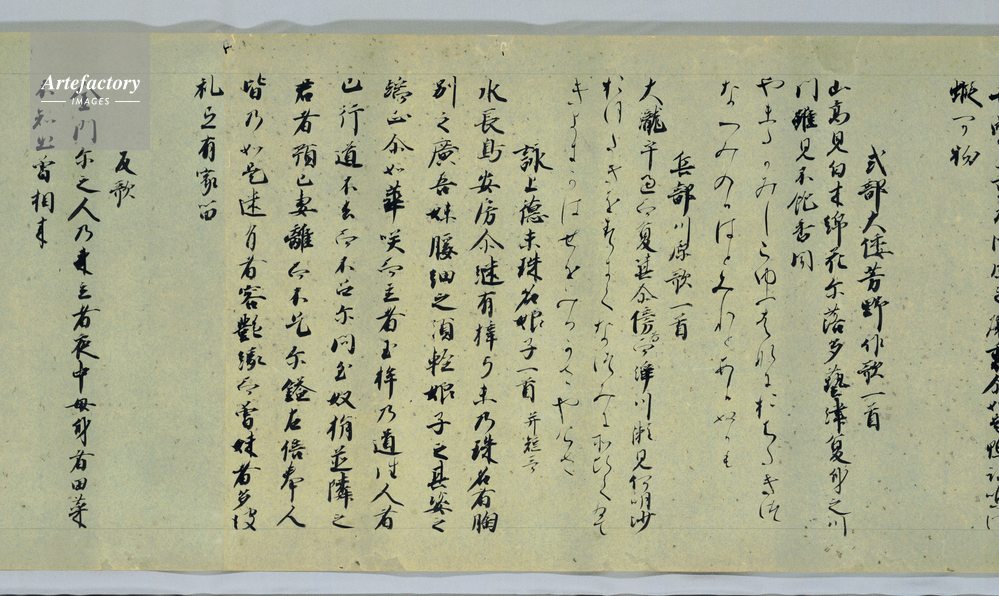 蝦可物
式部大倭芳野作歌一首
山高見白木綿花尓落多藝津夏身之川
門雖見不飽香聞
やまたかみしらゆふはなにおちたきつ
なつみのかはとみれとあかぬかも
兵部川原歌一首
大瀧乎過而夏箕尓傍為而浄川瀬見何明沙
おほたきをすきてなつみにそひてゐて
きよきかはせをみるかさやけさ
詠上徳末珠名娘子一首 并短哥
水長鳥安房尓継有梓弓末乃珠名者胸
別之廣吾妹腰細之須軽娘子之其姿之
端正尓如華咲而立者玉桙乃道徃人者
己行道不去而不召尓門至奴指並隣之
君者預己妻離而不乞尓鎰左倍奉人
皆乃如是迷有者容艶縁而曽妹者多波
礼弖有家留
反歌
金門尓之人乃来立者夜中母身者田菜
不知出曽相来
Artefactory
IMAGES